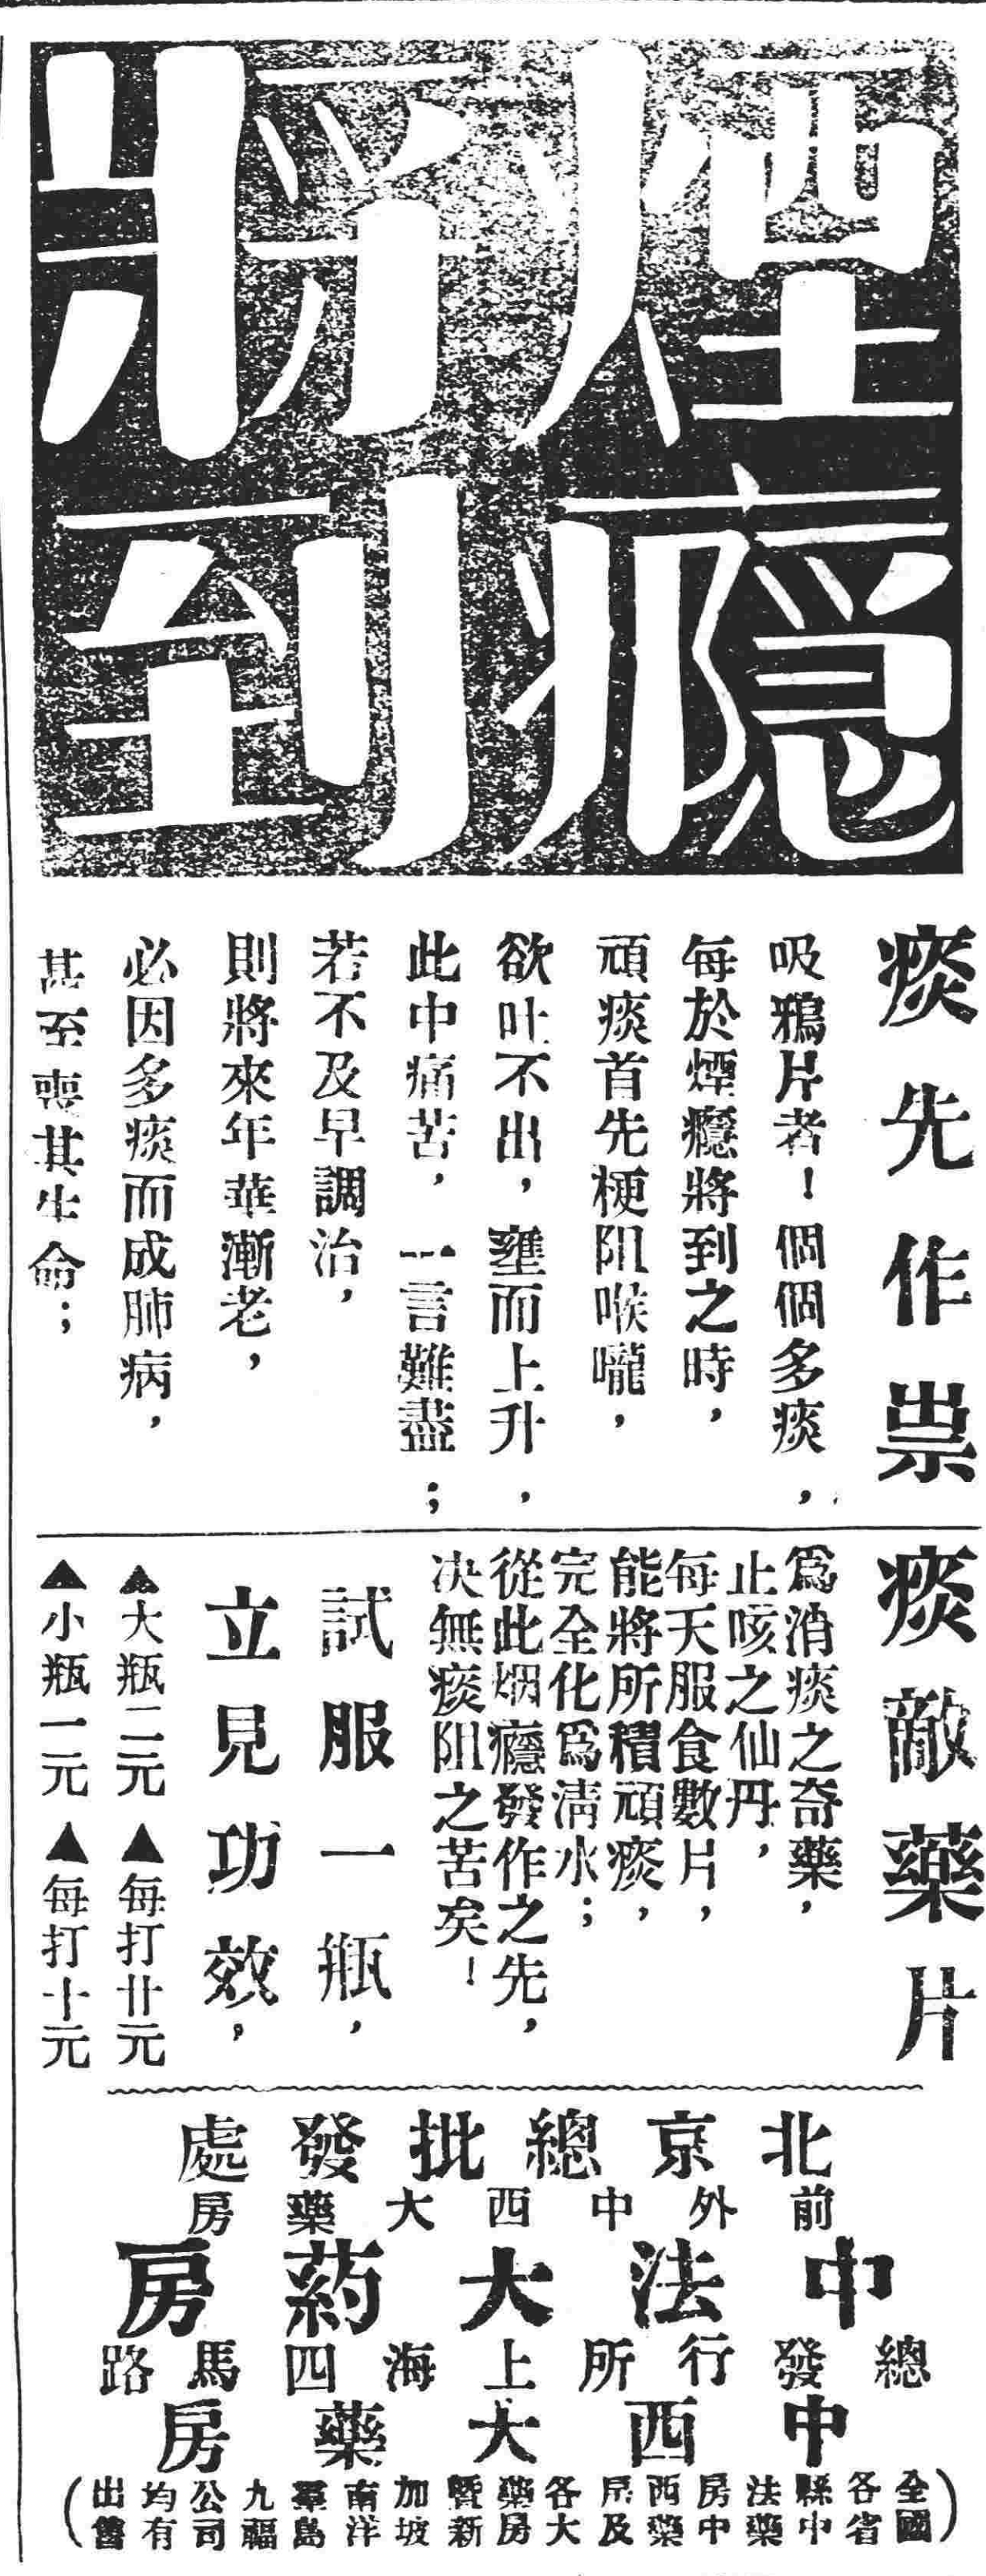 煙癮
將到
痰先作祟
吸鴉片者！個個多痰，
每於煙癮將到之時，
頑痰首先梗阻喉嚨，
欲吐不出，壅而上升，
此中痛苦，一言難盡；
若不及早調治，
則將來年華漸老，
必因多痰而成肺病，
甚至喪其生命；
痰敵藥片
為消痰之奇藥，
止咳之仙丹，
每天服食數片，
能將所積頑痰，
完全化為清水；
從此烟癮發作之先，
决無痰阻之苦矣！
試服一瓶，
立見功效，
▲大瓶二元▲每打廿元
▲小瓶一元▲每打十元
北京總批發處
前外中西大藥房
中法大药房
總發行所上海四馬路
中西大藥房
（全國各省縣中法藥房中西藥房及各大藥房曁新加坡南洋羣島九福公司均有出售）